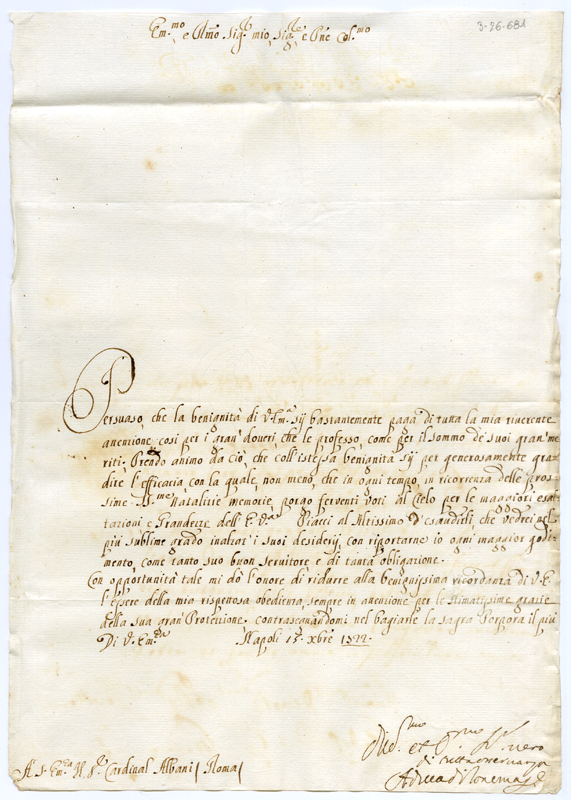 3-26-681
Em.mo e Rmo Sig.re mio, Sig.re e Pne Col.mo
Persuaso, che la benignità di V. Em.a sij bastantemente paga di tutta la mia riverente
attenzione, cosi per i gran' doveri, che le professo, come per il sommo de' suoi gran' me
riti. Prendo animo da ciò, che coll'istessa benignità sij per generosamente gra=
dire l'efficacia con la quale, non meno, che in ogni tempo, in ricorrenza delle pros
sime SS.me Natalitie memorie, porgo ferventi voti al Cielo per le maggiori esal
tazioni, e Grandezze dell' E. V.ra Piacci al Altissimo d'esaudirli, che vedrei nel
più sublime grado inalzar' i suoi desiderij, con riportarne io ogni maggior godi=
mento, come tanto suo buon servitore e di tanta obligazione.
Con opportunità tale mi dò l'onore di ridurre alla benignissima ricordanza di V. E.
l'essere della mia rispettosa obedienza, sempre in attenzione per le stimatissime grazie
della sua gran' Protezzione, contrasegnandomi nel bagiarle la sagra Porpora il più
Di V. Em.za Napoli 15 Xbre 1722.
A S. Em.za Il S.r Cardinal Albani Roma
Div.mo et Obb.mo Ser.r vero